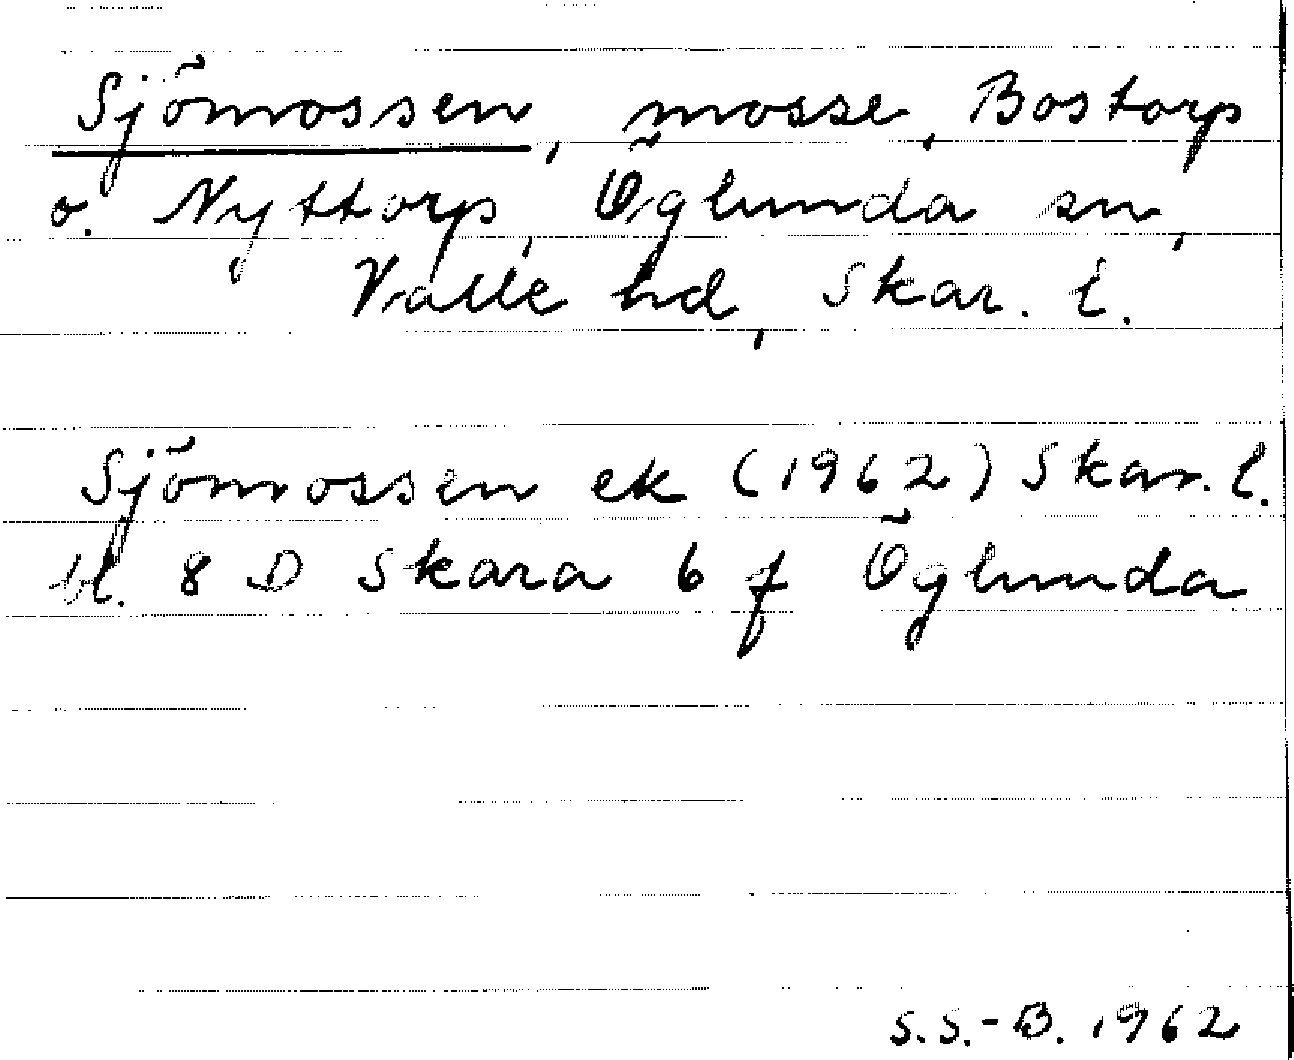 Sjömossen, mosse, Bostorp
o. Nyttorp, Öglunda sn,
Valle hd, Skar. l.
Sjömossen ek (1962) Skar. l.
bl. 8 D Skara 6 f Öglunda
S.S.-B. 1962